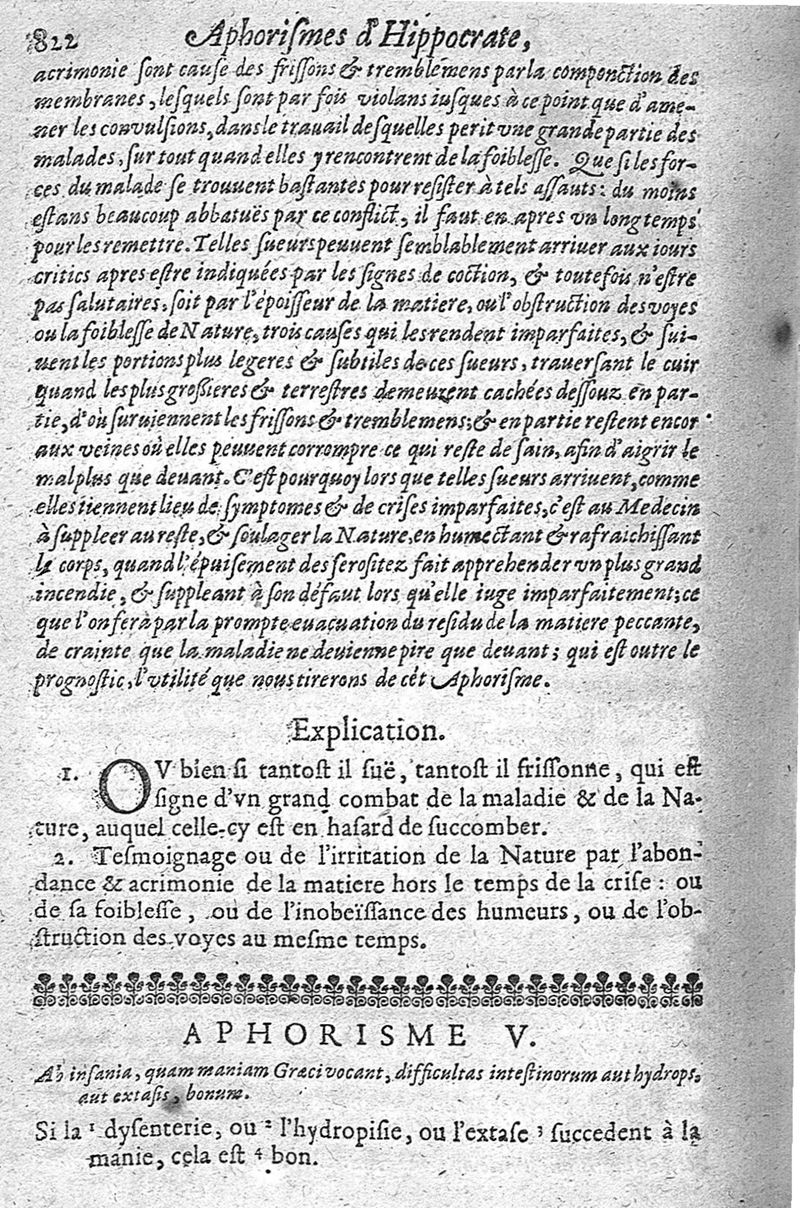 822 Aphoriſmes d'Hippocrate,
acrimonie ſont cauſe des friſſons & tremblemens par la componction des
membranes, leſquels ſont par fois violans iuſques à ce point que d'ame-
ner les convulſions, dans le trauail deſquelles perit vne grande partie des
malades, ſur tout quand elles y rencontrent de la foibleſſe. Que ſi les for-
ces du malade ſe trouuent baſtantes pour reſiſter à tels aſſauts: du moins
eſtans beaucoup abbatuës par ce conflict, il faut en apres vn long temps
pour les remettre. Telles ſueurs peuuent ſemblablement arriuer aux iours
critics apres eſtre indiquées par les ſignes de coction, & toutefois n'eſtre
pas ſalutaires, ſoit par l'époiſſeur de la matiere, ou l'obſtruction des voyes
ou la foibleſſe de Nature, trois cauſes qui les rendent imparfaites, & ſui-
uent les portions plus legeres & ſubtiles de ces ſueurs, trauerſant le cuir
quand les plus groſſieres & terreſtres demeurent cachées deſſouz en par-
tie, d'où ſuruiennent les friſſons & tremblemens; & en partie reſtent encor
aux veines où elles peuuent corrompre ce qui reſte de ſain, afin d'aigrir le
mal plus que deuant. C'eſt pourquoy lors que telles ſueurs arriuent, comme
elles tiennent lieu de ſymptomes & de criſes imparfaites, c'eſt au Medecin
à ſuppleer au reſte, & ſoulager la Nature, en humectant & rafraichiſſant
le corps, quand l'épuiſement des ſeroſitez fait apprehender vn plus grand
incendie, & ſuppleant à ſon défaut lors qu'elle iuge imparfaitement; ce
que l'on fera par la prompte euacuation du reſidu de la matiere peccante,
de crainte que la maladie ne deuienne pire que deuant; qui eſt outre le
prognoſtic, l'vtilité que nous tirerons de cét Aphoriſme.
Explication.
1. OV bien ſi tantoſt il ſuë, tantoſt il friſſonne, qui eſt
ſigne d'vn grand combat de la maladie & de la Na-
ture, auquel celle-cy eſt en haſard de ſuccomber.
2. Teſmoignage ou de l'irritation de la Nature par l'abon-
dance & acrimonie de la matiere hors le temps de la criſe: ou
de ſa foibleſſe, ou de l'inobeïſſance des humeurs, ou de l'ob-
ſtruction des voyes au meſme temps.
APHORISME V.
Ab inſania, quam maniam Græci vocant, difficultas inteſtinorum aut hydrops,
aut extaſis, bonum.
Si la 1 dyſenterie, ou 2 l'hydropiſie, ou l'extaſe 3 ſuccedent à la
manie, cela eſt 4 bon.